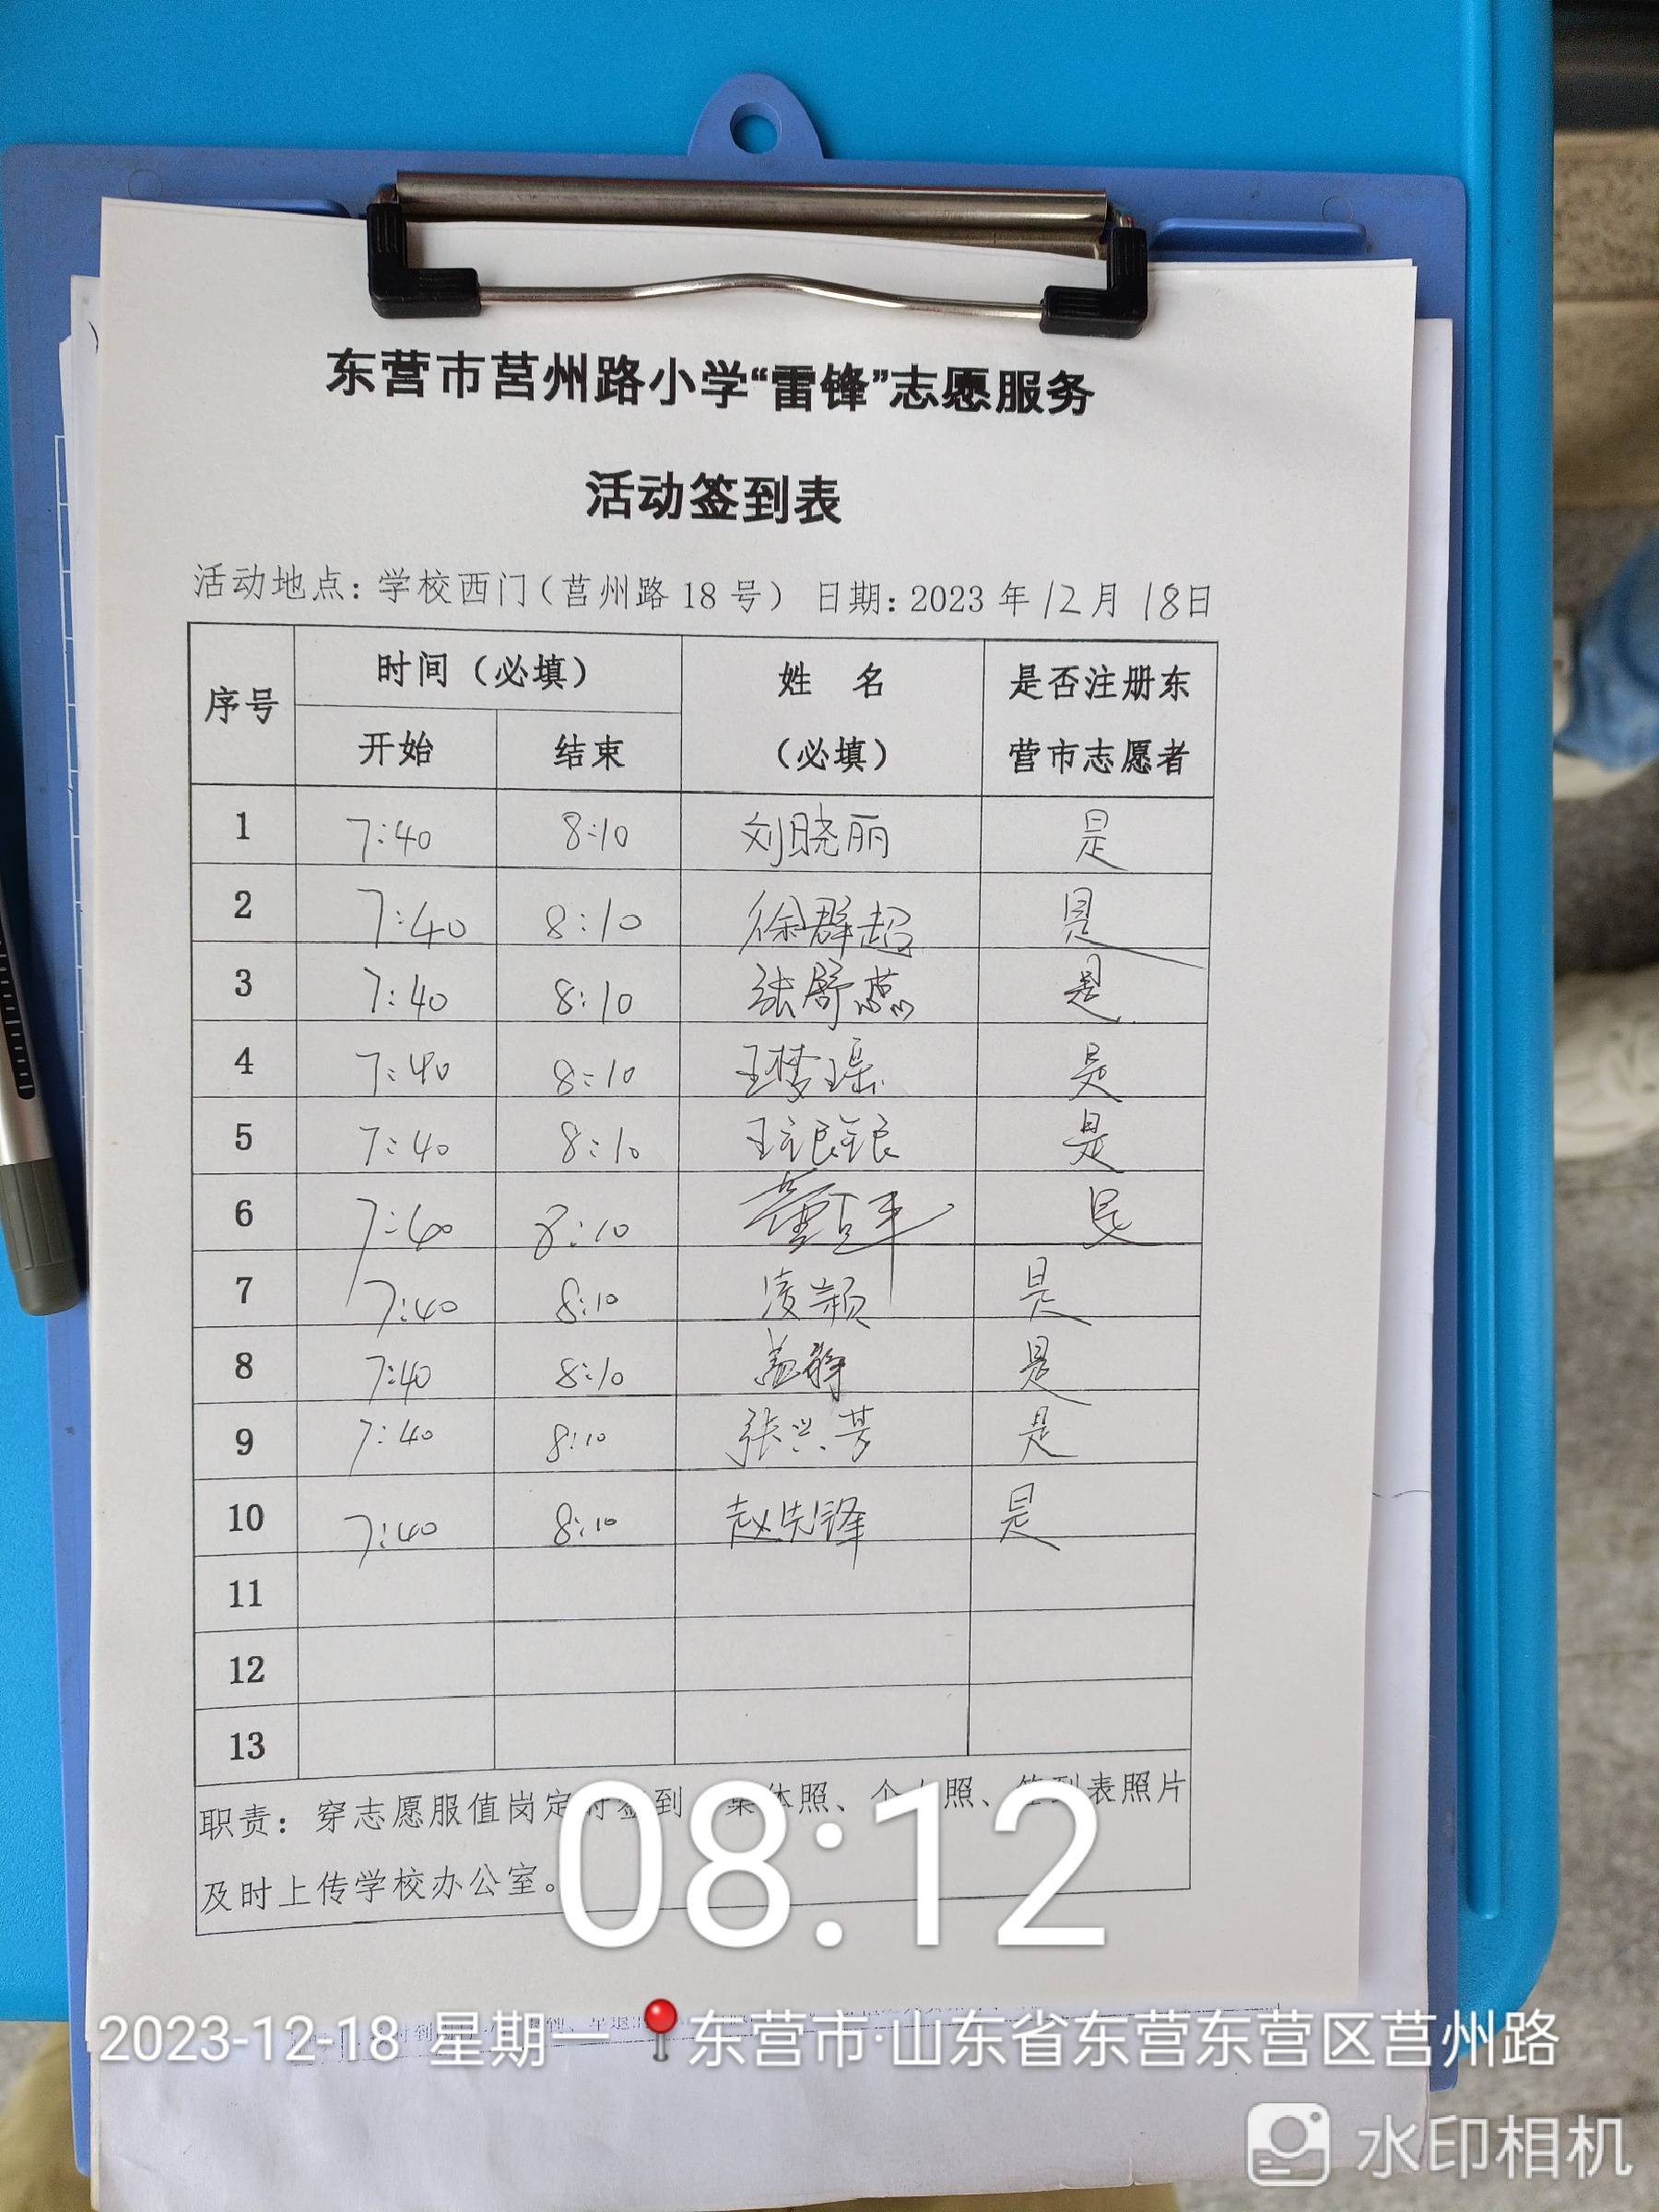 东营市莒州路小学“雷锋”志愿服务
活动签到表
活动地点：学校西门（莒州路18号） 日期：2023年12月18日
序号 时间（必填） 姓 名 是否注册东
开始 结束 （必填） 营市志愿者
1 7:40 8:10 刘晓丽 是
2 7:40 8:10 徐群超 是
3 7:40 8:10 张舒蕊 是
4 7:40 8:10 王梦瑶 是
5 7:40 8:10 是
6 7:40 8:10 是
7 7:40 8:10 凌颖 是
8 7:40 8:10 盖静 是
9 7:40 8:10 张兴芳 是
10 7:40 8:10 赵先锋 是
11
12
13
职责：穿志愿服值岗定时签到 集体照、个人照、签到表照片
及时上传学校办公室。
08:12
2023-12-18 星期一 东营市·山东省东营东营区莒州路
水印相机